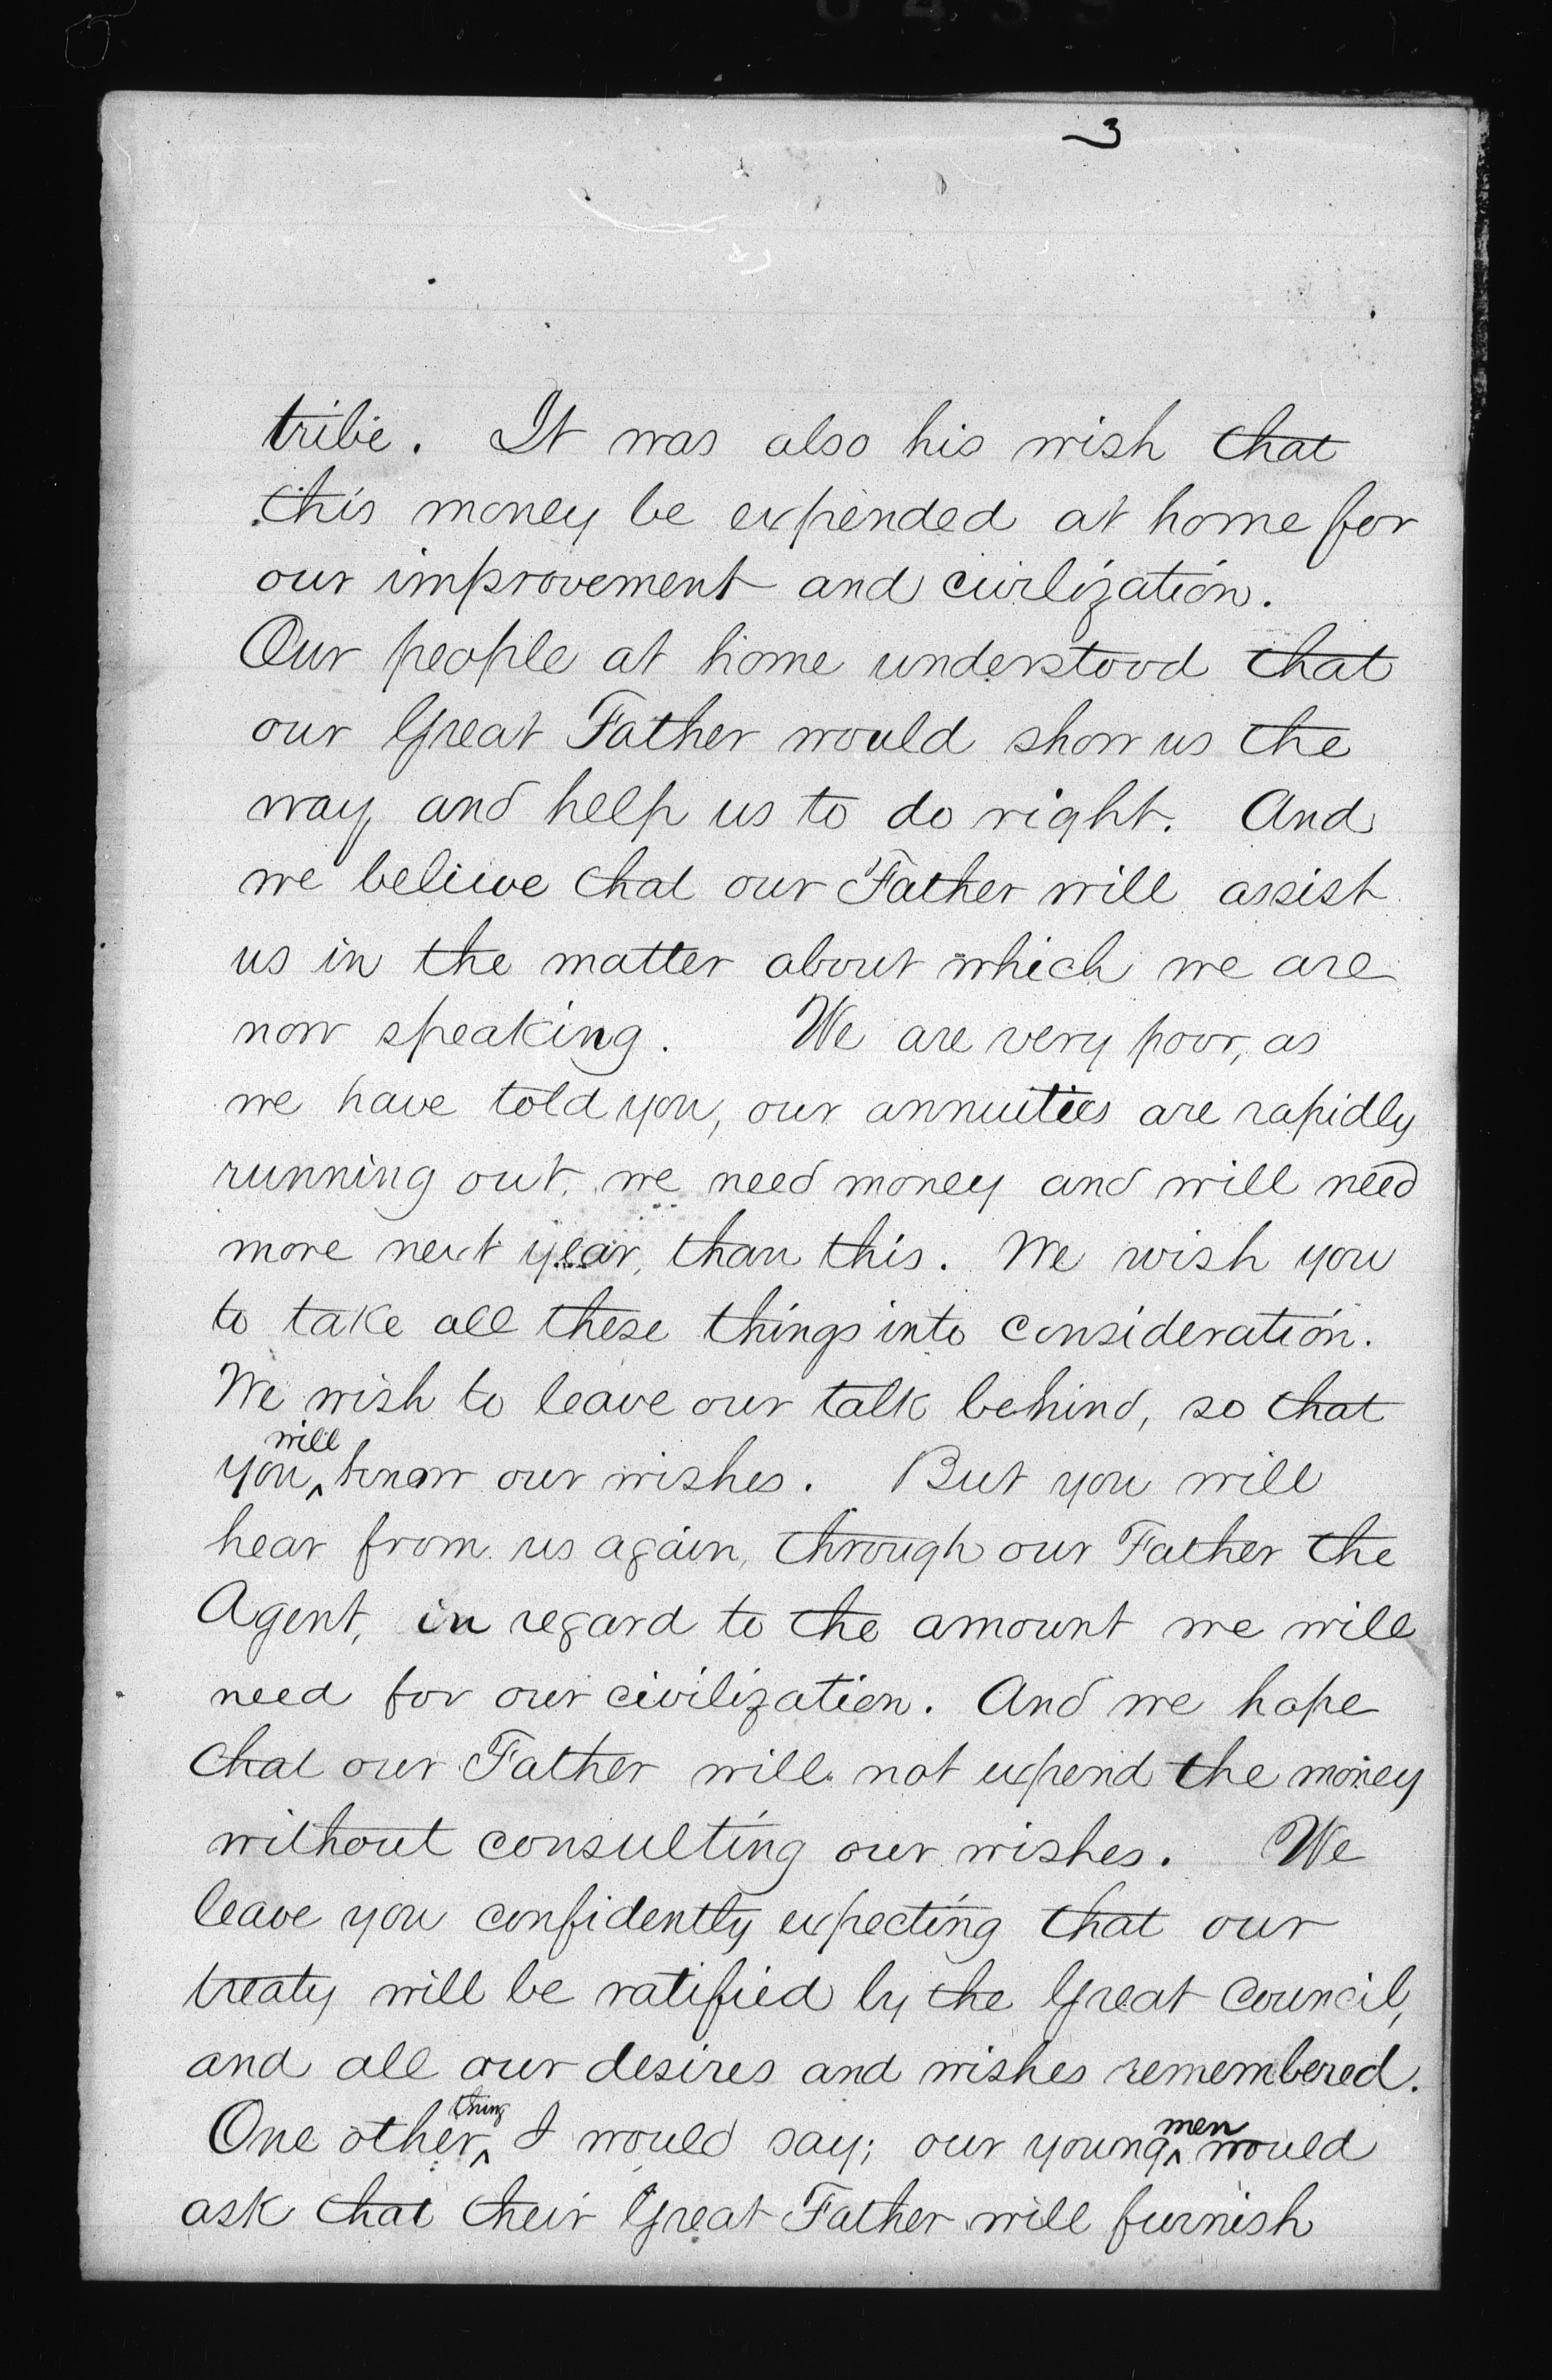 3
tribe. It was also his wish that
this money be expended at home for
our improvement and civilization.
Our people at home understood that
our Great Father would show us the
way and help us to do right. And
we believe that our Father will assist
us in the matter about which we are
now speaking. We are very poor, as
we have told you, our annuities are rapidly
running out, we need money and will need
more next year, than this. We wish you
to take all these things into consideration.
We wish to leave our talk behind, so that
will
you ^ know our wishes. But you will
hear from us again, through our Father the
Agent, in regard to the amount we will
need for our civilization. And we hope
that our Father will not expend the money
without consulting our wishes. We
leave you confidently expecting that our
treaty will be ratified by the Great Council,
and all our desires and wishes remembered.
thing men
One other ^ I would say; our young ^ would
ask that their Great Father will furnish